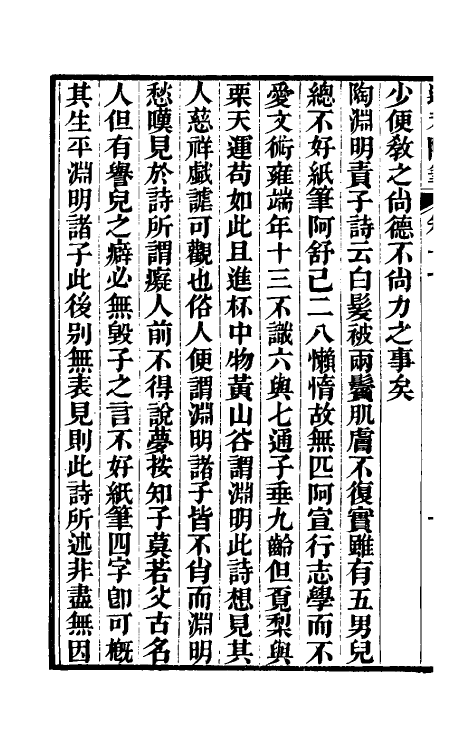 少便敎之尙德不尙力之事矣
陶淵明責子詩云白髮被兩鬢肌膚不復實雖有五男兒
總不好紙筆阿舒已二八懶惰故無匹阿宣行志學而不
愛文術雍端年十三不識六與七通子垂九齡但覓梨與
栗天運苟如此且進杯中物黃山谷謂淵明此詩想見其
人慈祥戲謔可觀也俗人便謂淵明諸子皆不肖而淵明
愁嘆見於詩所謂癡人前不得說夢按知子莫若父古名
人但有譽兒之癖必無毀子之言不好紙筆四字卽可槪
其生平淵明諸子此後别無表見則此詩所述非盡無因